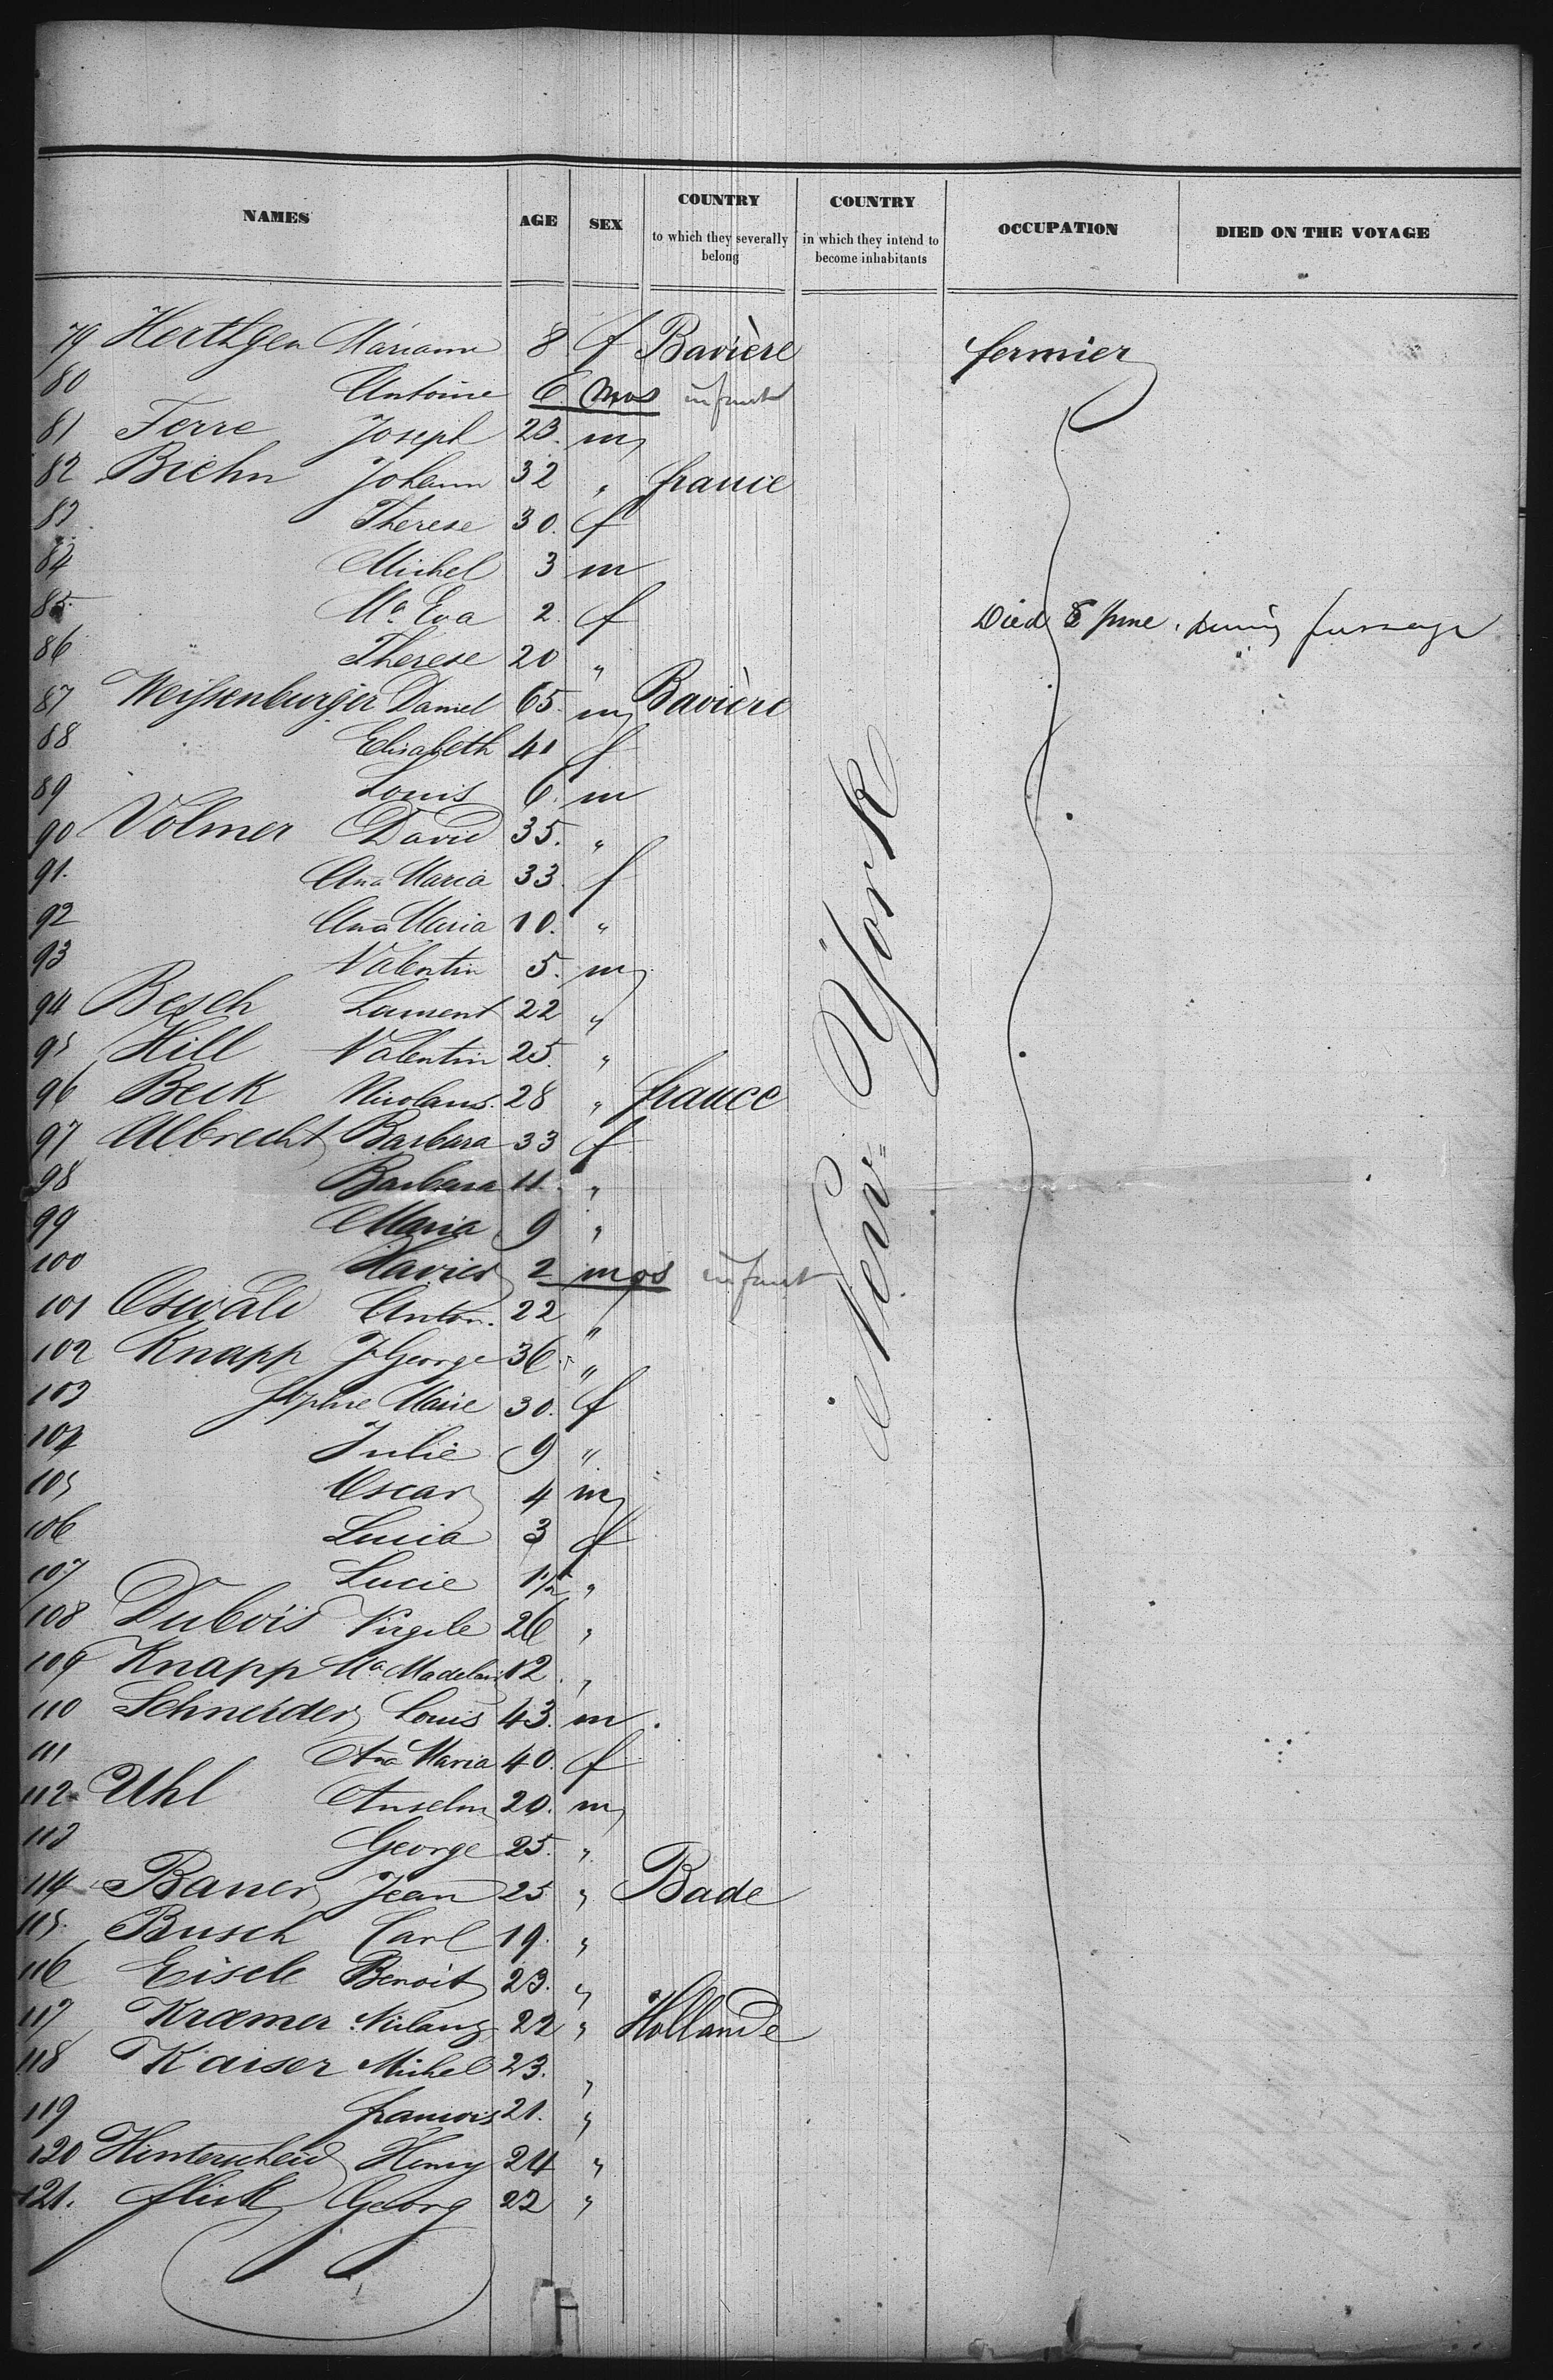 NAMES AGE SEX COUNTRY to which they severally belong COUNTRY in which they intend to become inhabitants OCCUPATION DIED ON THE VOYAGE
79 Herthgen Mariann 8 f Bavière fermier
80 Antoine 6 mos infant
81 Ferre Joseph 23. m
82 Biehn Johann 32 " france
83 Therese 30. f
84 Michel 3 m
85 Ma. Eva 2. f Died 8 June, during passage
86 Therese 20 "
87 Weissenburger Daniel 65. m Bavière
88 Elisabeth 41 f
89 Louis 6. m
90 Volmer David 35. "
91. Ana Maria 33. f
92 Ana Maria 10. "
93 Valentin 5. m
94 Besch Laurent 22 "
95 Hill Valentin 25. "
96 Beck Nicolaus. 28 " france
97 Albrecht Barbara 33 f
98 Barbara 11. "
99 Maria 9 "
100 Xavier 2 mos infant
101 Oswald Anton. 22 "
102 Knapp J. George 36 "
103 Sophie Marie 30. f
104 Julie 9 "
105 Oscar 4 m
106 Lucia 3 f
107 Lucie 1 1/2 "
108 Dubois Virgile 26 "
109 Knapp Ma Madelain 12 "
110 Schneider Louis 43. m
111 Ana Maria 40. f
112 Uhl Anselm 20. m
113 George 25. "
114 Bauer Jean 25 " Bade
115. Busch Carl 19. "
116 Eisele Benoit 23. "
117 Kræmer 22 " Hollande
118 Kaiser Michel 23. "
119 francois 21. "
120 Hinterscheid Henry 24 "
121. flick Georg 22 "
New-York